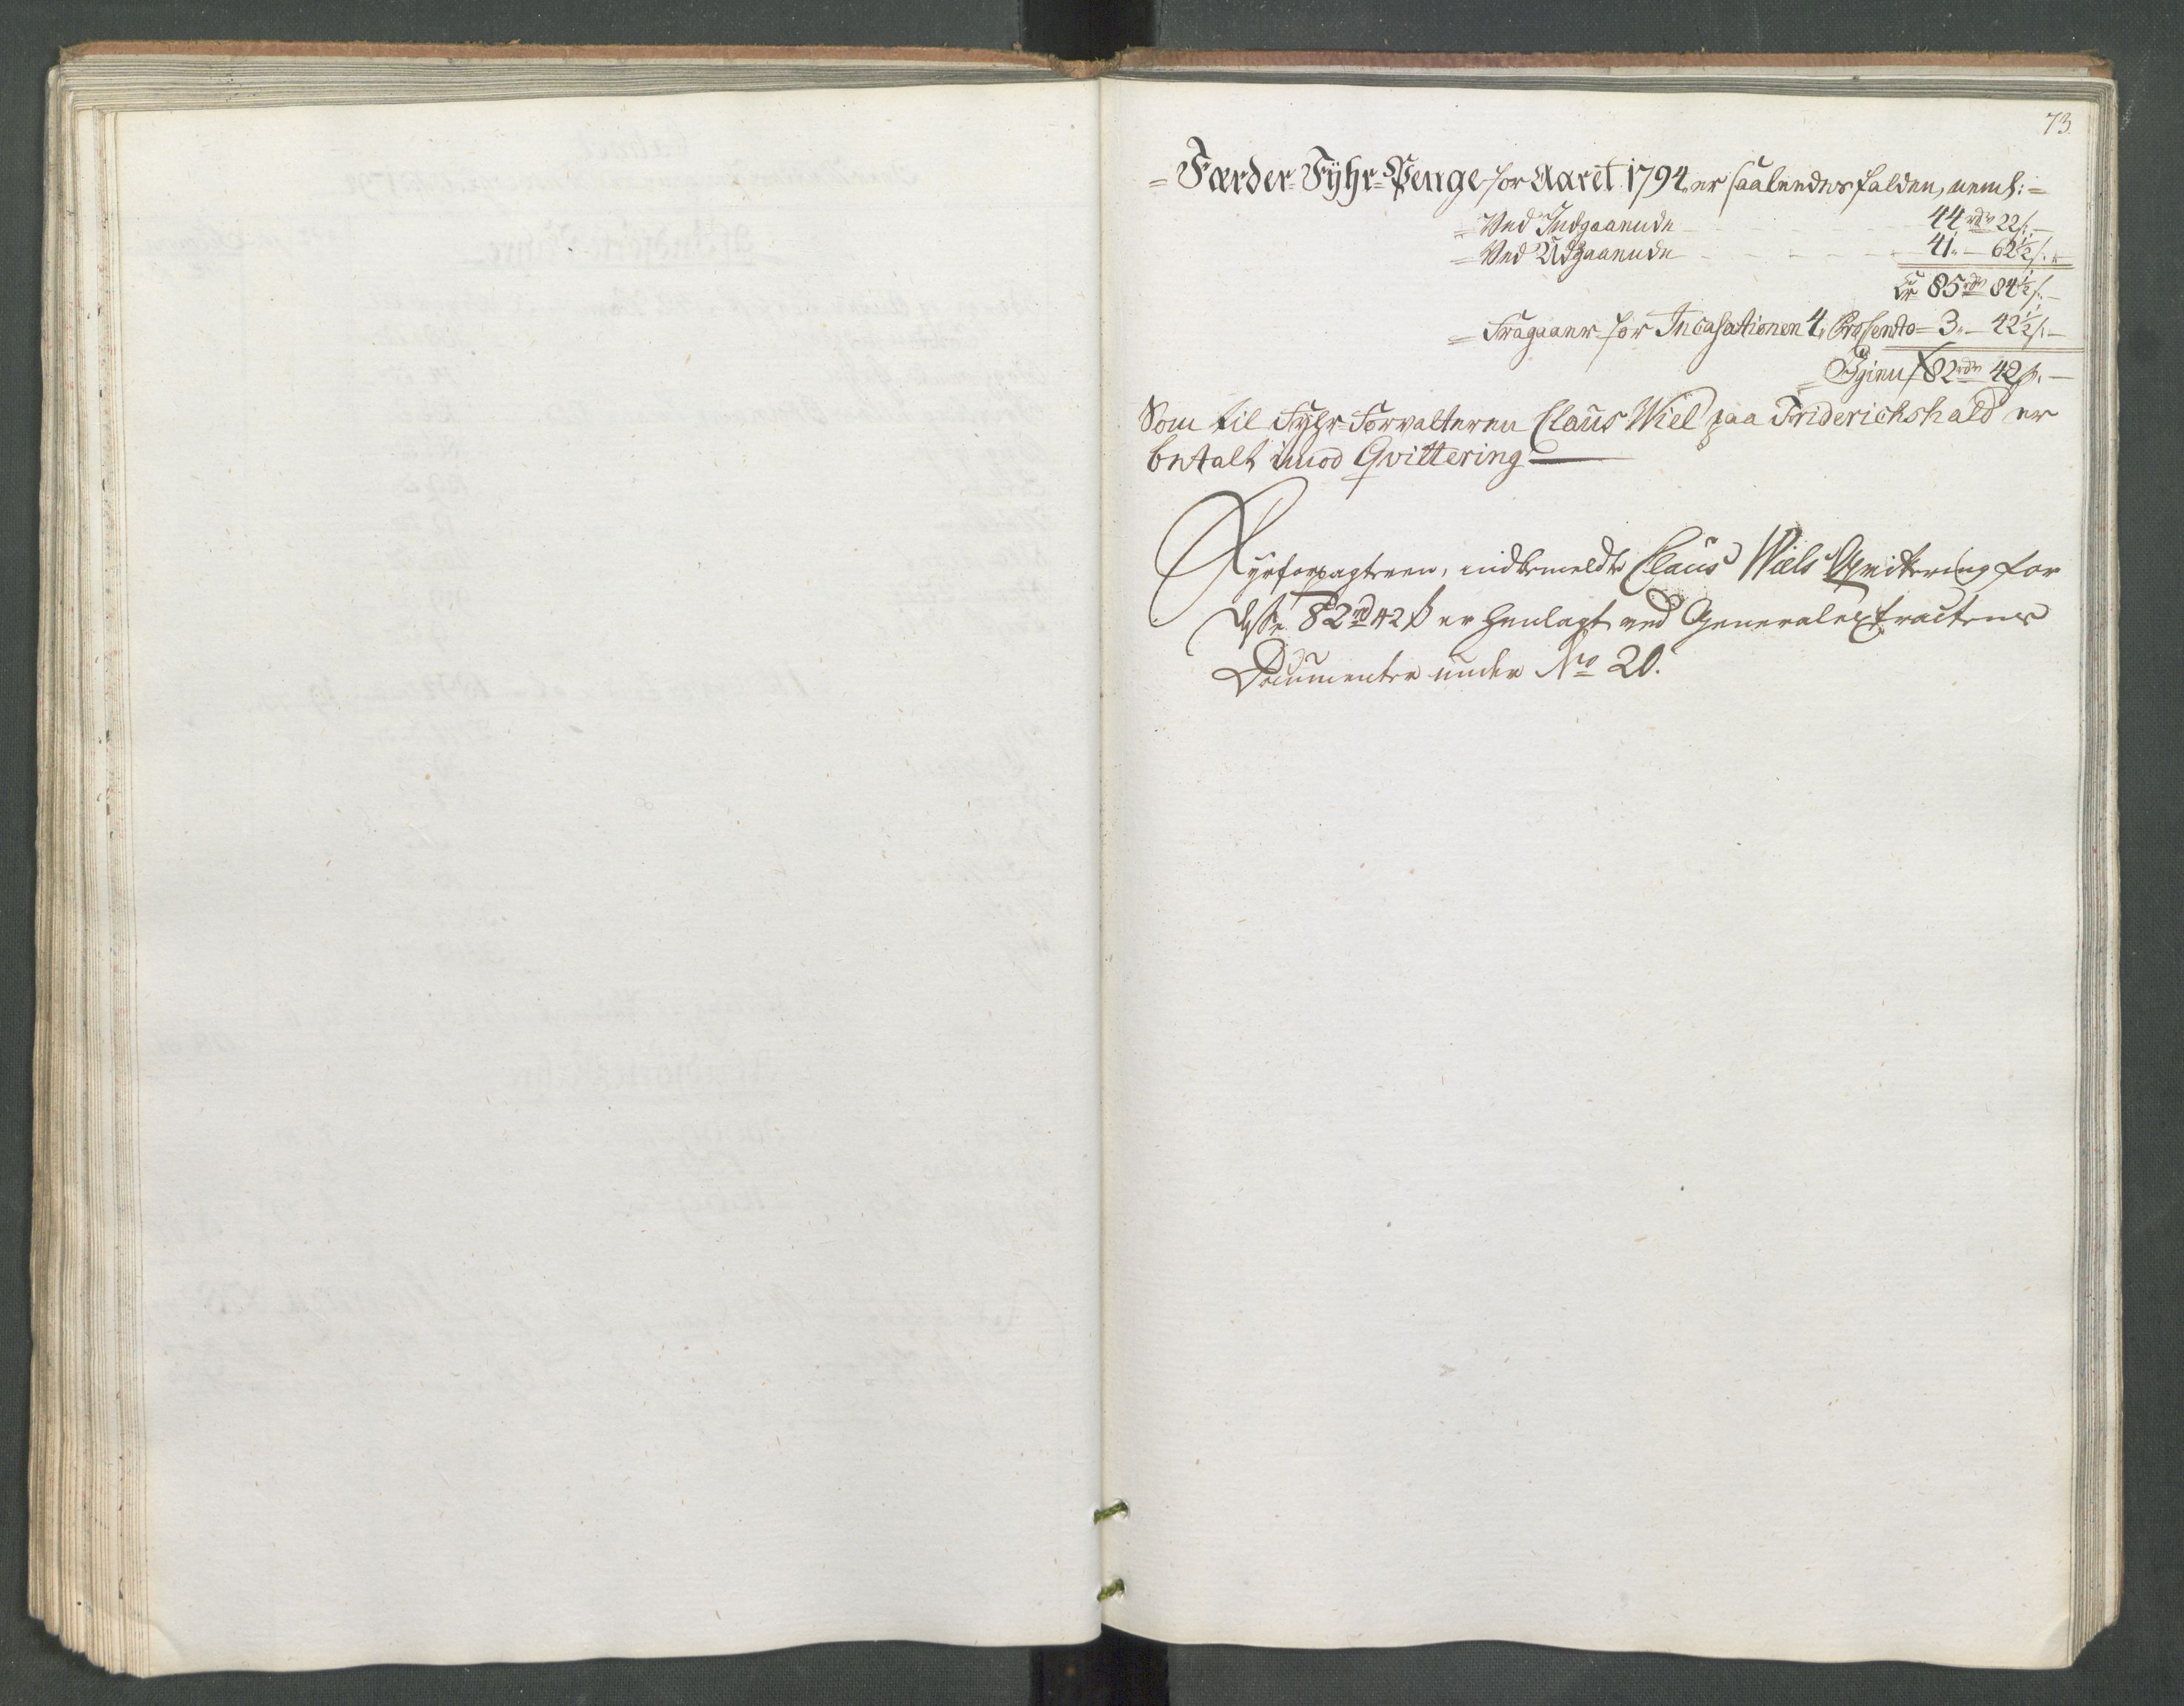 73.
= Færder-Fyhr-Penge for Aaret 1794, er saaledes falden, neml: =
= Ved Indgaaende - - - 44 rdr 22 s. -
= Ved Udgaaende - - - 41 " - 62½ s. "
Er 85 rdr 84½ s. -
= Fragaaer for Incasationen 4 Prosento - 3 " - 42½ s. -
= Igien 82 rdr 42 s. -
Som til Fyhr-Forvalteren Claus Wiel paa Friderichshald er
betalt imod Qvittering
Fyrforpagteren, indbemeldte Claus Wiels Qvittering for
disse 82 rd 42 s er henlagt ved Generalextractens
Documenter under No 20.